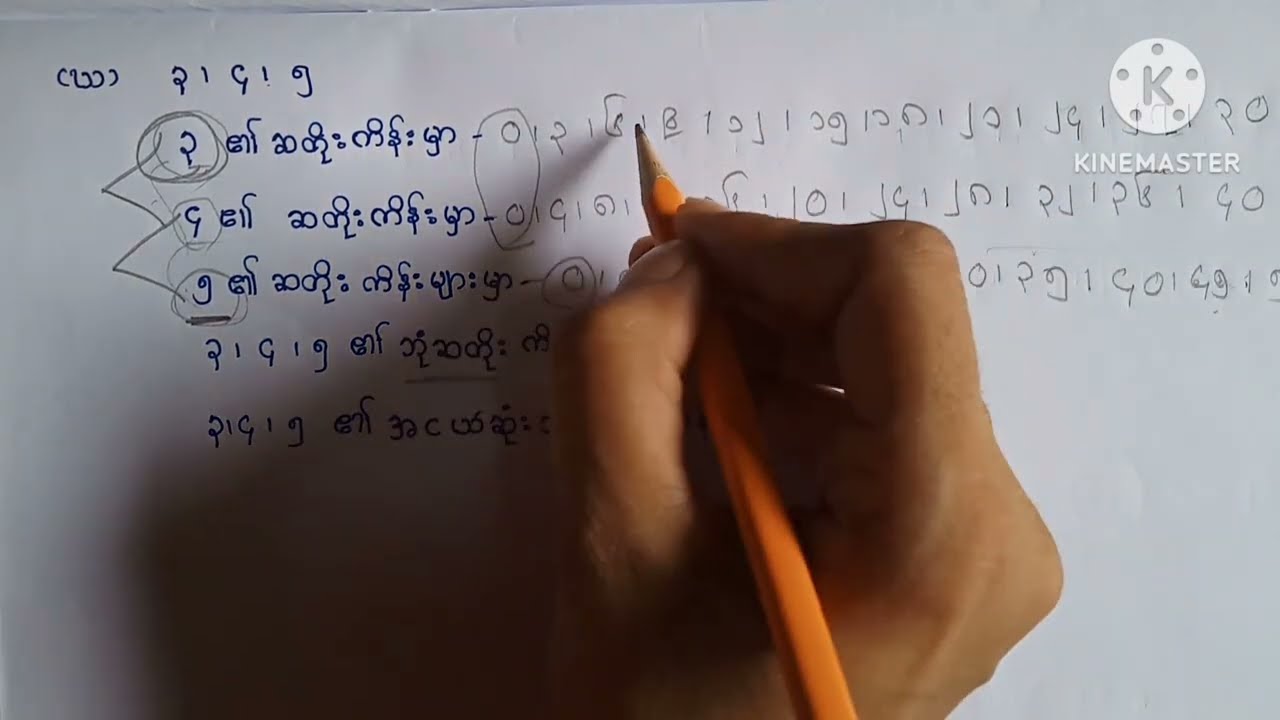 (ဃ) ၃၊ ၄၊ ၅
၃ ၏ ဆတိုးကိန်းမှာ - ၀၊ ၃၊ ၆၊ ၉၊ ၁၂၊ ၁၅၊ ၁၈၊ ၂၁၊ ၂၄၊ ၃၀
KINEMASTER
၄ ၏ ဆတိုးကိန်းမှာ - ၀၊ ၄၊ ၈၊ ၂၀၊ ၂၄၊ ၂၈၊ ၃၂၊ ၃၆၊ ၄၀
၅ ၏ ဆတိုးကိန်းများမှာ - ၀၊ ၃၅၊ ၄၀၊ ၄၅၊
၃၊ ၄၊ ၅ ၏ ဘုံဆတိုး
၃၊ ၄၊ ၅ ၏ အငယ်ဆုံး